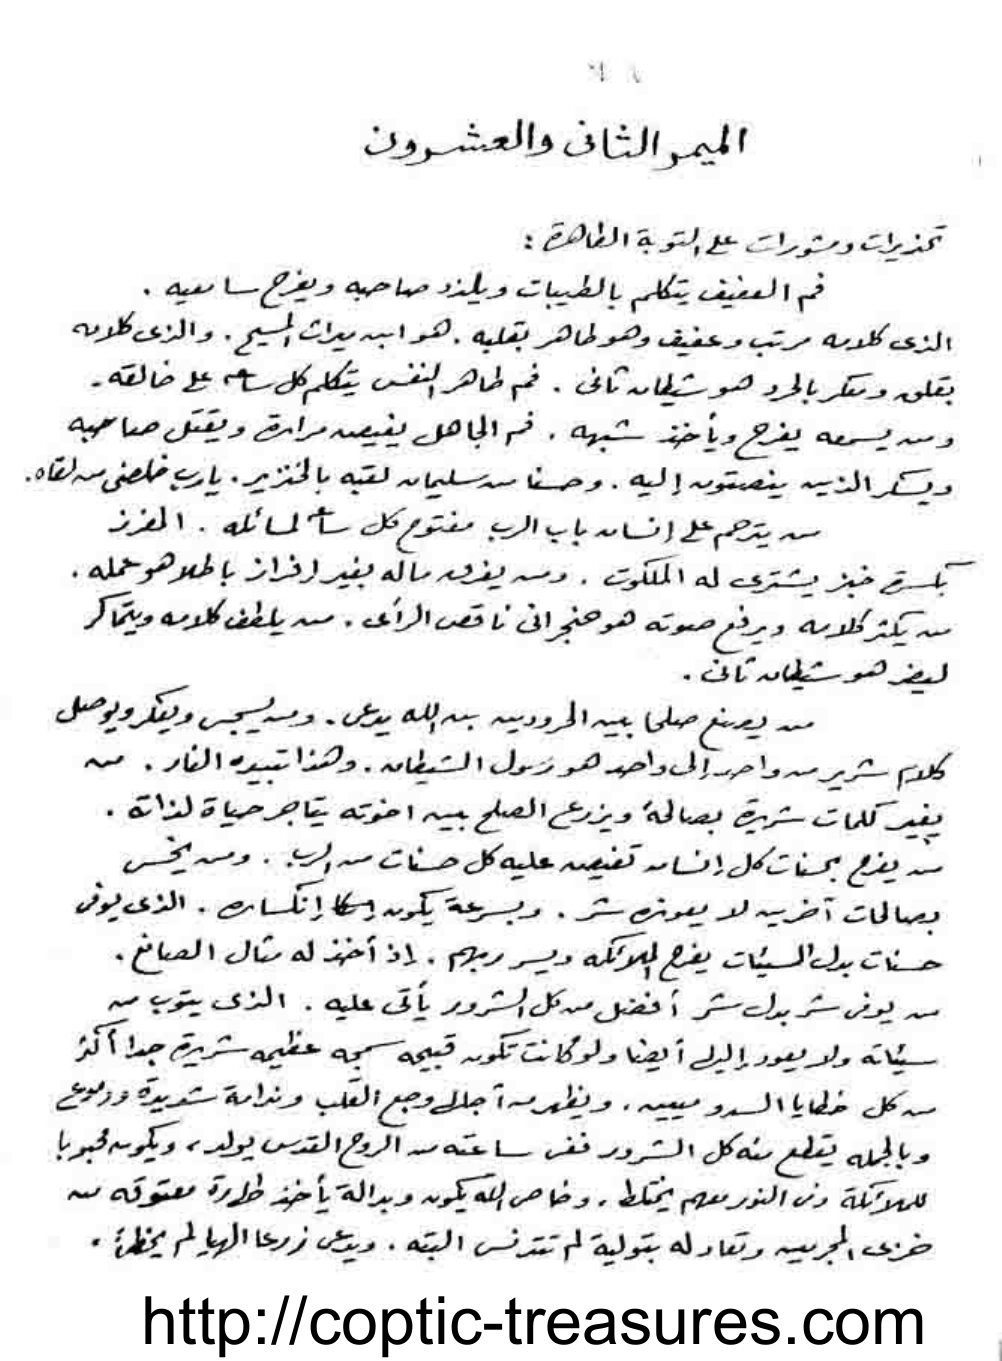 الميمر الثانى والعشرون
تحذيرات ومشورات على التوبة الطاهرة :
فم العفيف يتكلم بالطيبات ويلذذ صاحبه ويفرح سامعيه .
الذى كلامه مرتب وعفيف وهو طاهر بقلبه . هو ابن ميراث المسيح . والذى كلامه
بقلق ومفكر بالحرد هو شيطان ثانى . فم طاهر النفس يتكلم كل ساعه على خالقه .
ومن يسمعه يفرح ويأخذ شبهه . فم الجاهل يفيض مرارة ويقتل صاحبه
ويسكر الذين ينصتون إليه . وحسنا من سليمان لقبه بالخنزير . يارب خلصنى من لقاه .
من يترحم على إنسان باب الرب مفتوح كل ساعه لمسائله . المفرز
بكسرة خبز يشترى له الملكوت . ومن يفرق ماله بغير افراز باطلا هو عمله .
من يكثر كلامه ويرفع صوته هو حنجرانى ناقص الرأى . من يلطف كلامه ويتماكر
ليضر هو شيطان ثانى .
من يصنع صلحا بين الحرودين بن الله يدعى . ومن يسجس ويعكر ويوصل
كلام شرير من واحد إلى واحد هو رسول الشيطان . وهذا تبيده النار . من
يغير كلمات شريرة بصالحة ويزرع الصلح بين اخوته يتاجر حياة لذاته .
من يفرح بحسنات كل إنسان تفيض عليه كل حسنات من الرب . ومن يخس
بصالحات آخرين لا يعوزه شر . وبسرعة يكون إنكساره . الذى يوفى
حسنات بدل السيئات يفرح الملائكه ويسر ربهم . إذ أخذ له مثال الصانع .
من يوفى شر بدل شر أفضل من كل الشرور يأتى عليه . الذى يتوب من
سيئاته ولا يعود إليها أيضا ولو كانت تكون قبيحه سمجه عظيمه شريرة جدا أكثر
من كل خطايا السدوميين . ويظهر من أجلها وجع القلب وندامة شديدة ودموع
وبالجمله يقطع منه كل الشرور ففى ساعته من الروح القدس يولد ، ويكون محبوبا
للملائكة وفى النور معهم يختلط . وخاص الله يكون وبدالة يأخذ طهارة معتوقه من
خزى المجربين وتعادله بتولية لم تتدنس البته . ويدعى زرعا الهيا لم يخطئ .
http://coptic-treasures.com